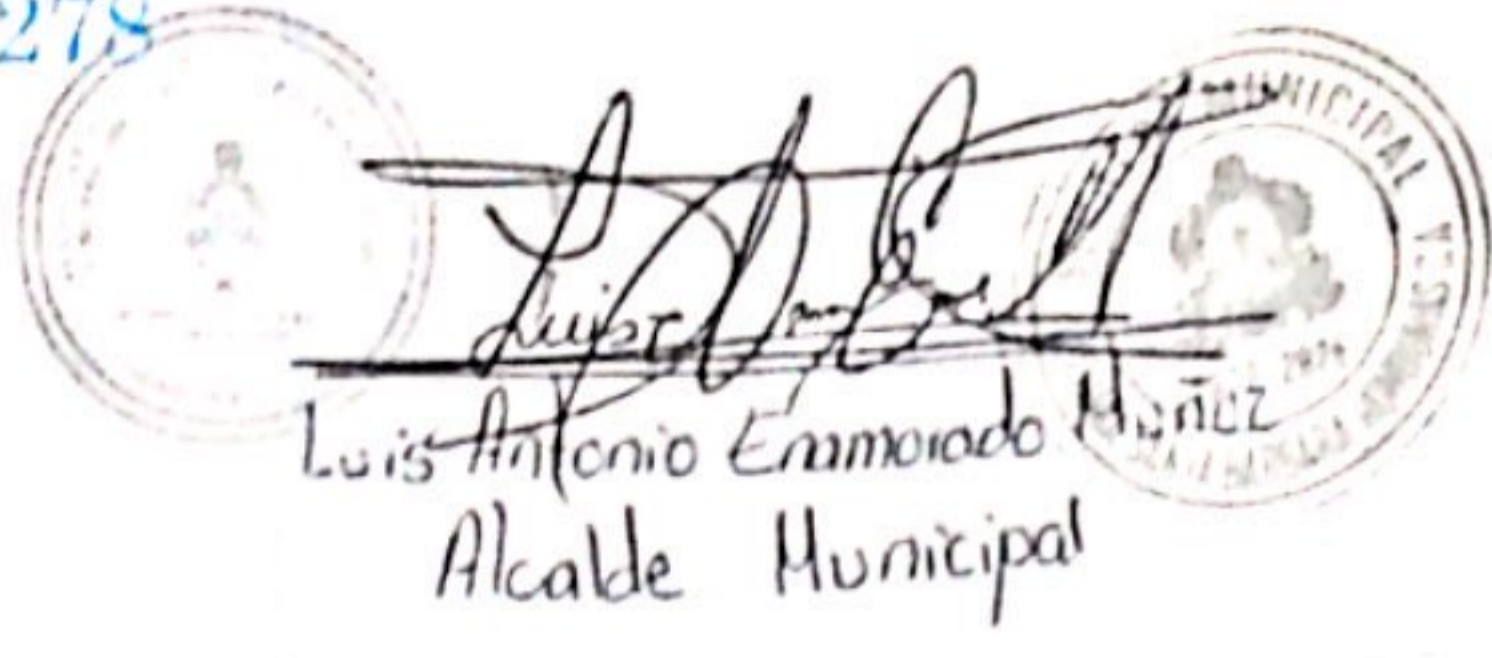 278
MUNICIPAL
Luis Antonio Enamorado Muñoz
Alcalde Municipal